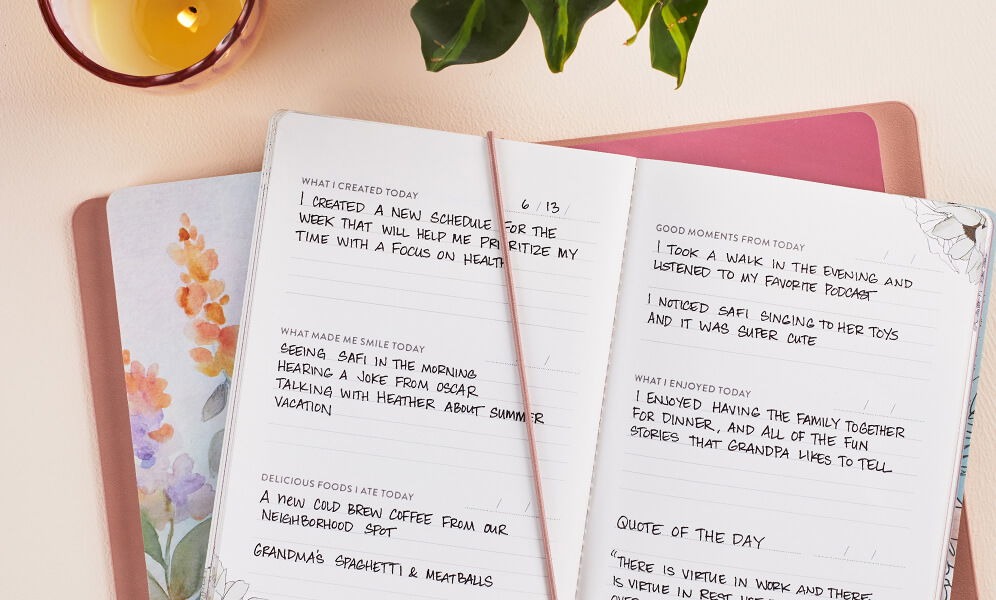 WHAT I CREATED TODAY
6 / 13 /
I CREATED A NEW SCHEDULE FOR THE
WEEK THAT WILL HELP ME PRIORITIZE MY
TIME WITH A FOCUS ON HEALTH
WHAT MADE ME SMILE TODAY
SEEING SAFI IN THE MORNING
HEARING A JOKE FROM OSCAR
TALKING WITH HEATHER ABOUT SUMMER
VACATION
DELICIOUS FOODS I ATE TODAY
A NEW COLD BREW COFFEE FROM OUR
NEIGHBORHOOD SPOT
GRANDMA'S SPAGHETTI & MEATBALLS
GOOD MOMENTS FROM TODAY
I TOOK A WALK IN THE EVENING AND
LISTENED TO MY FAVORITE PODCAST
I NOTICED SAFI SINGING TO HER TOYS
AND IT WAS SUPER CUTE
WHAT I ENJOYED TODAY
I ENJOYED HAVING THE FAMILY TOGETHER
FOR DINNER, AND ALL OF THE FUN
STORIES THAT GRANDPA LIKES TO TELL
QUOTE OF THE DAY
"THERE IS VIRTUE IN WORK AND THERE
IS VIRTUE IN REST. USE